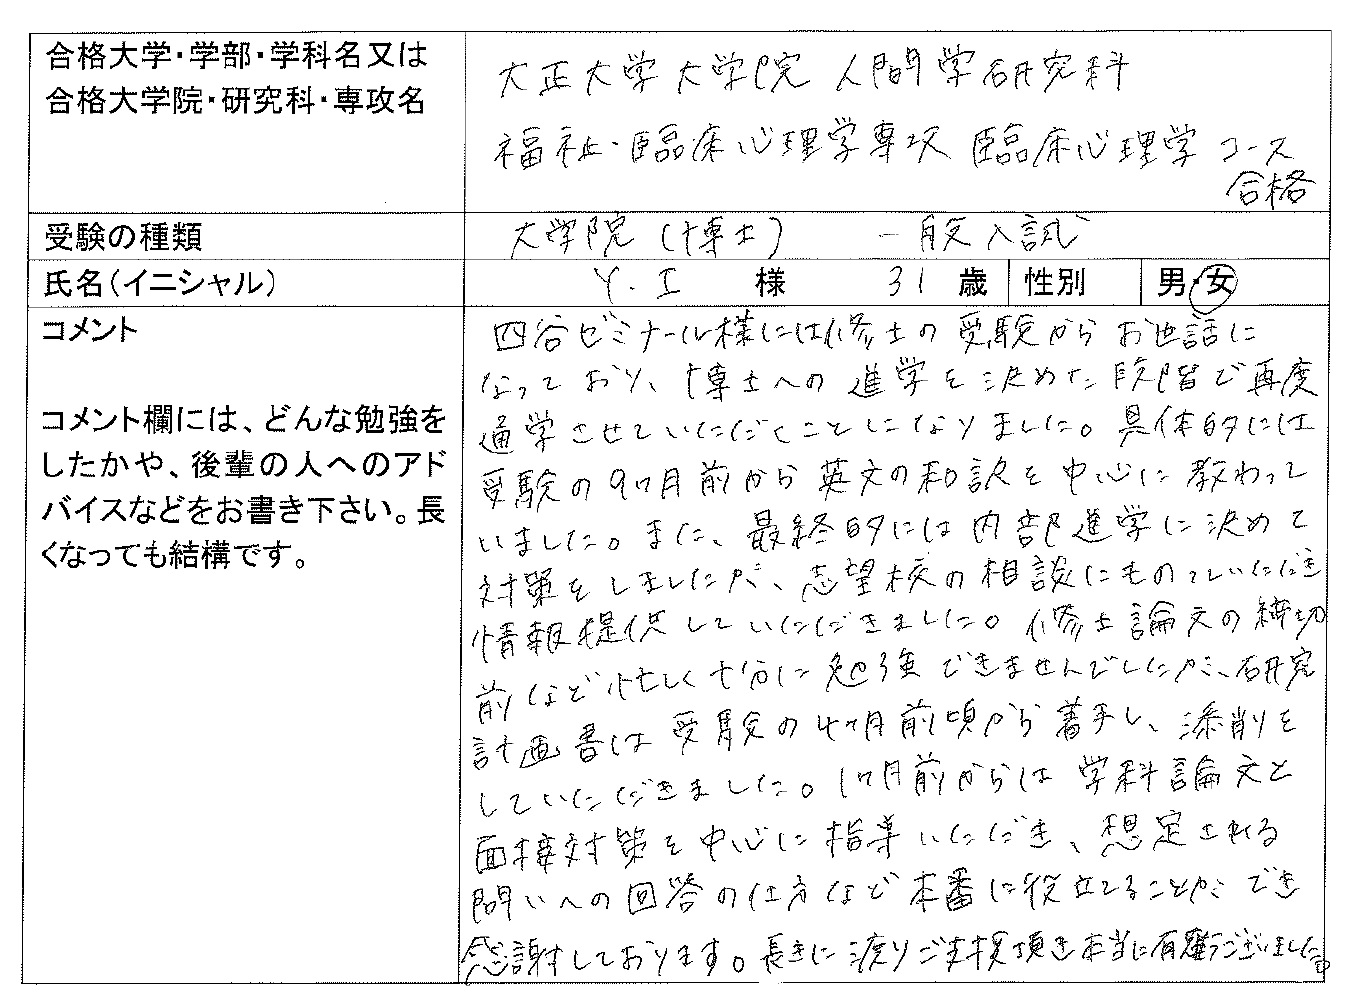 合格大学・学部・学科名又は
合格大学院・研究科・専攻名
大正大学大学院 人間学研究科
福祉・臨床心理学専攻 臨床心理学コース
合格
受験の種類
大学院(博士) 一般入試
氏名(イニシャル)
Y.I 様 31 歳 性別 男・女
コメント
コメント欄には、どんな勉強を
したかや、後輩の人へのアド
バイスなどをお書き下さい。長
くなっても結構です。
四谷ゼミナール様には修士の受験からお世話に
なっており、博士への進学を決めた段階で再度
通学させていただくことになりました。具体的には
受験の9ヶ月前から英文の和訳を中心に教わって
いました。また、最終的には内部進学に決めて
対策をしましたが、志望校の相談にものっていただき
情報提供していただきました。修士論文の締切
前など忙しく十分に勉強できませんでしたが、研究
計画書は受験の4ヶ月前頃から着手し、添削を
していただきました。1ヶ月前からは学科論文と
面接対策を中心に指導いただき、想定される
問いへの回答の仕方など本番に役立てることができ
感謝しております。長きに渡りご支援頂き本当に有難うございました。